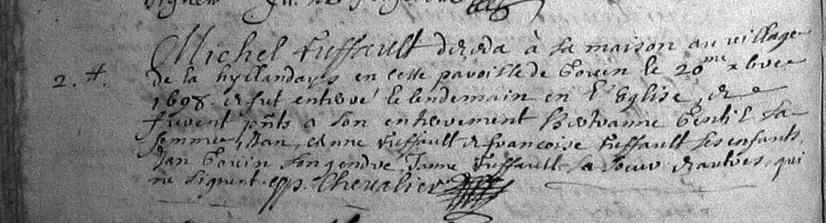 Michel Fuffault dceda à sa maison au village
2. #. de la hyllandays en cette paroisse de Goven le 20me xbre
1698. et fut enterré le lendemain en l'Eglise, et
furent pnts a son enterrement Gentil sa
femme, Jan, et anne Fuffault et francoise Fuffault ses enfants
Jan son gendre, Janne Fuffault sa soeur et autres, qui
ne signent. Chevalier